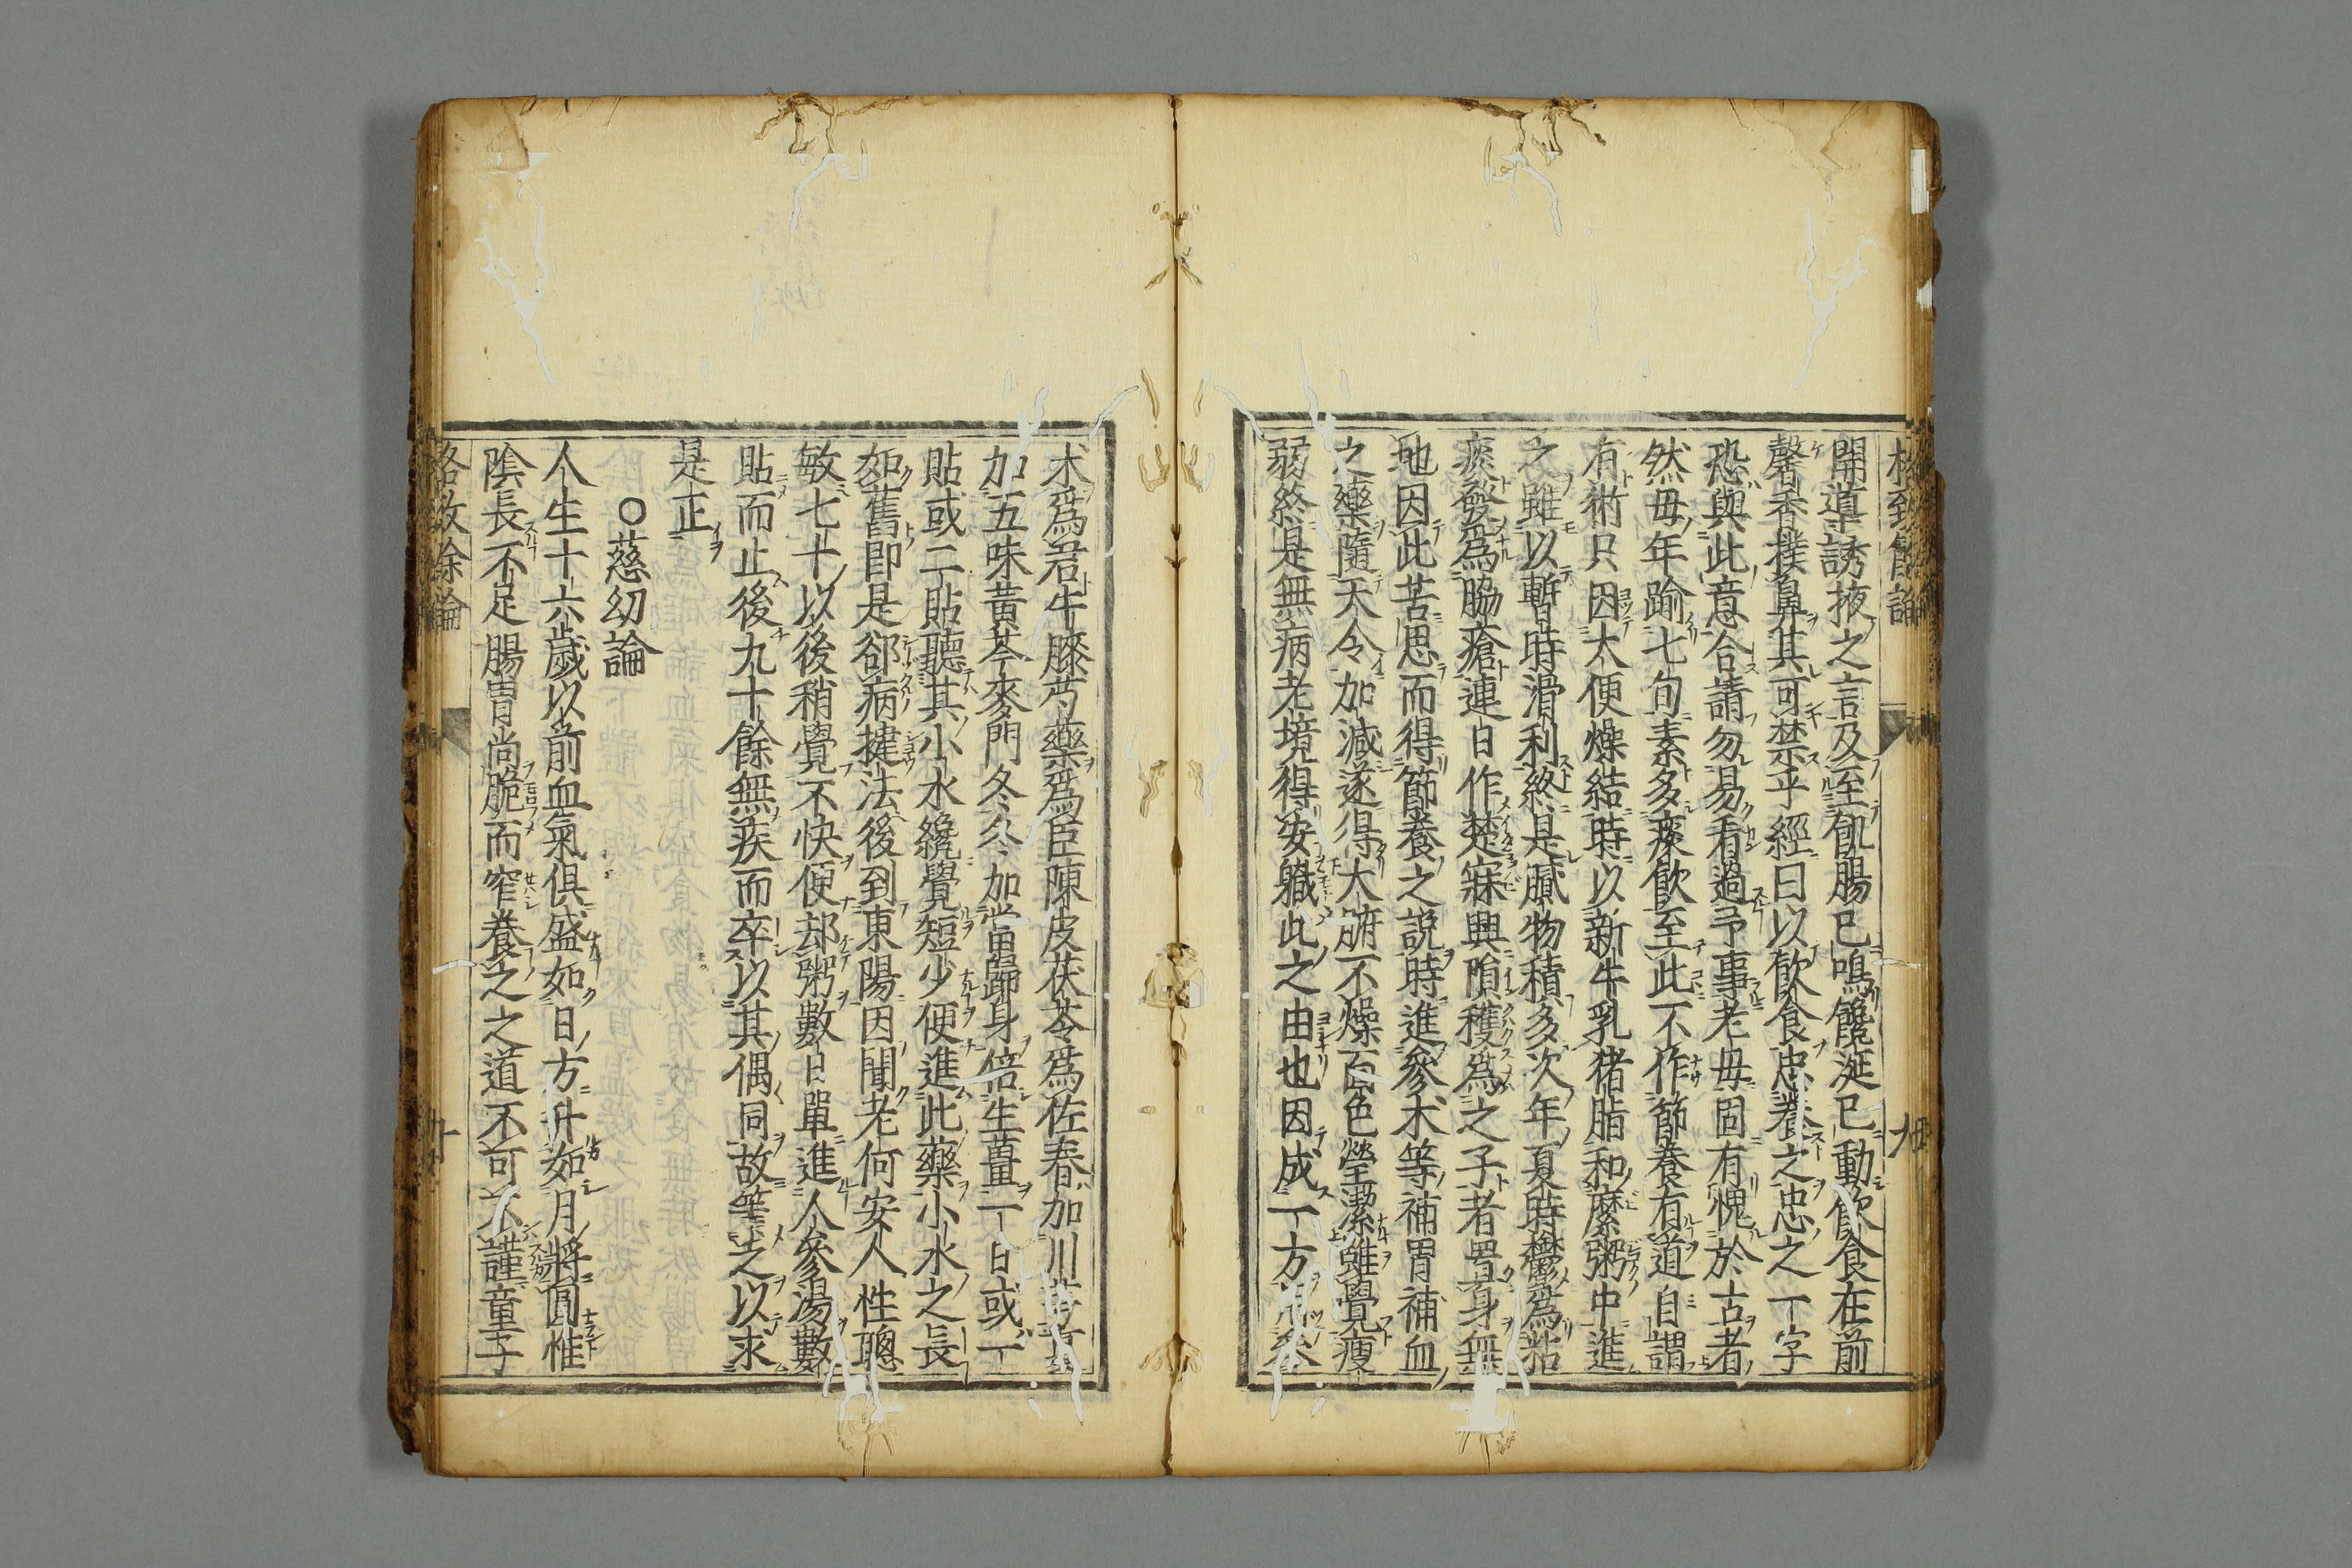 開導誘掖之言及至飢腸已鳴饞涎已動飲食在前
馨香撲鼻其可禁乎經曰以飲食忠養之忠之一字
恐與此意合請勿易看過予事老母固有愧於古者
然母年踰七旬素多痰飲至此不作節養有道自謂
有術只因大便燥結時以新牛乳猪脂和糜粥中進
之雖以暫時滑利終是膩物積多次年夏時鬱爲粘
痰發爲脇瘡連日作楚寐興隕穫爲之子者置身無
地因此苦思而得節養之説時進參朮等補胃補血
之藥隨天令加減遂得大腑不燥面色瑩潔雖覺瘦
弱終是無病老境得安職此之由也因成一方用參
朮爲君牛膝芍藥爲臣陳皮茯苓爲佐春加川芎夏
加五味黃芩麥門冬冬加當歸身倍生薑一日或一
貼或二貼聽其小水纔覺短少便進此藥小水之長
如舊即是卻病揵法後到東陽因聞老何安人性聰
敏七十以後稍覺不快便却粥數日單進人參湯數
貼而止後九十餘無疾而卒以其偶同故筆之以求
是正
○慈幼論
人生十六歲以前血氣俱盛如日方升如月將圓惟
陰長不足腸胃尚脆而窄養之之道不可不謹童子
格致餘論